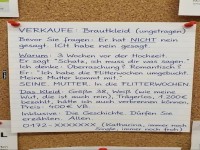 VERKAUFE: Brautkleid (ungetragen)
Bevor Sie fragen: Er hat NICHT nein
gesagt. ICH habe nein gesagt.
Warum: 3 Wochen vor der Hochzeit
Er sagt "Schatz, ich muss dir was sagen."
Ich denke: Überraschung? Romantisch?
Er: "Ich habe die Flitterwochen umgebucht.
Meine Mutter kommt mit."
DEINE. MUTTER. In die FLITTERWOCHEN.
Das Kleid: Größe 38, Weiß (wie meine
Wut, die ist auch rein), Trägerlos, 1.200€
bezahlt, hätte ich auch verbrennen können.
Preis: 400€ VB
Inklusive: Die Geschichte. Dürfen Sie
erzählen. Allen.
0172-XXXXXXX (Katharina, immer noch
Single, immer noch froh)